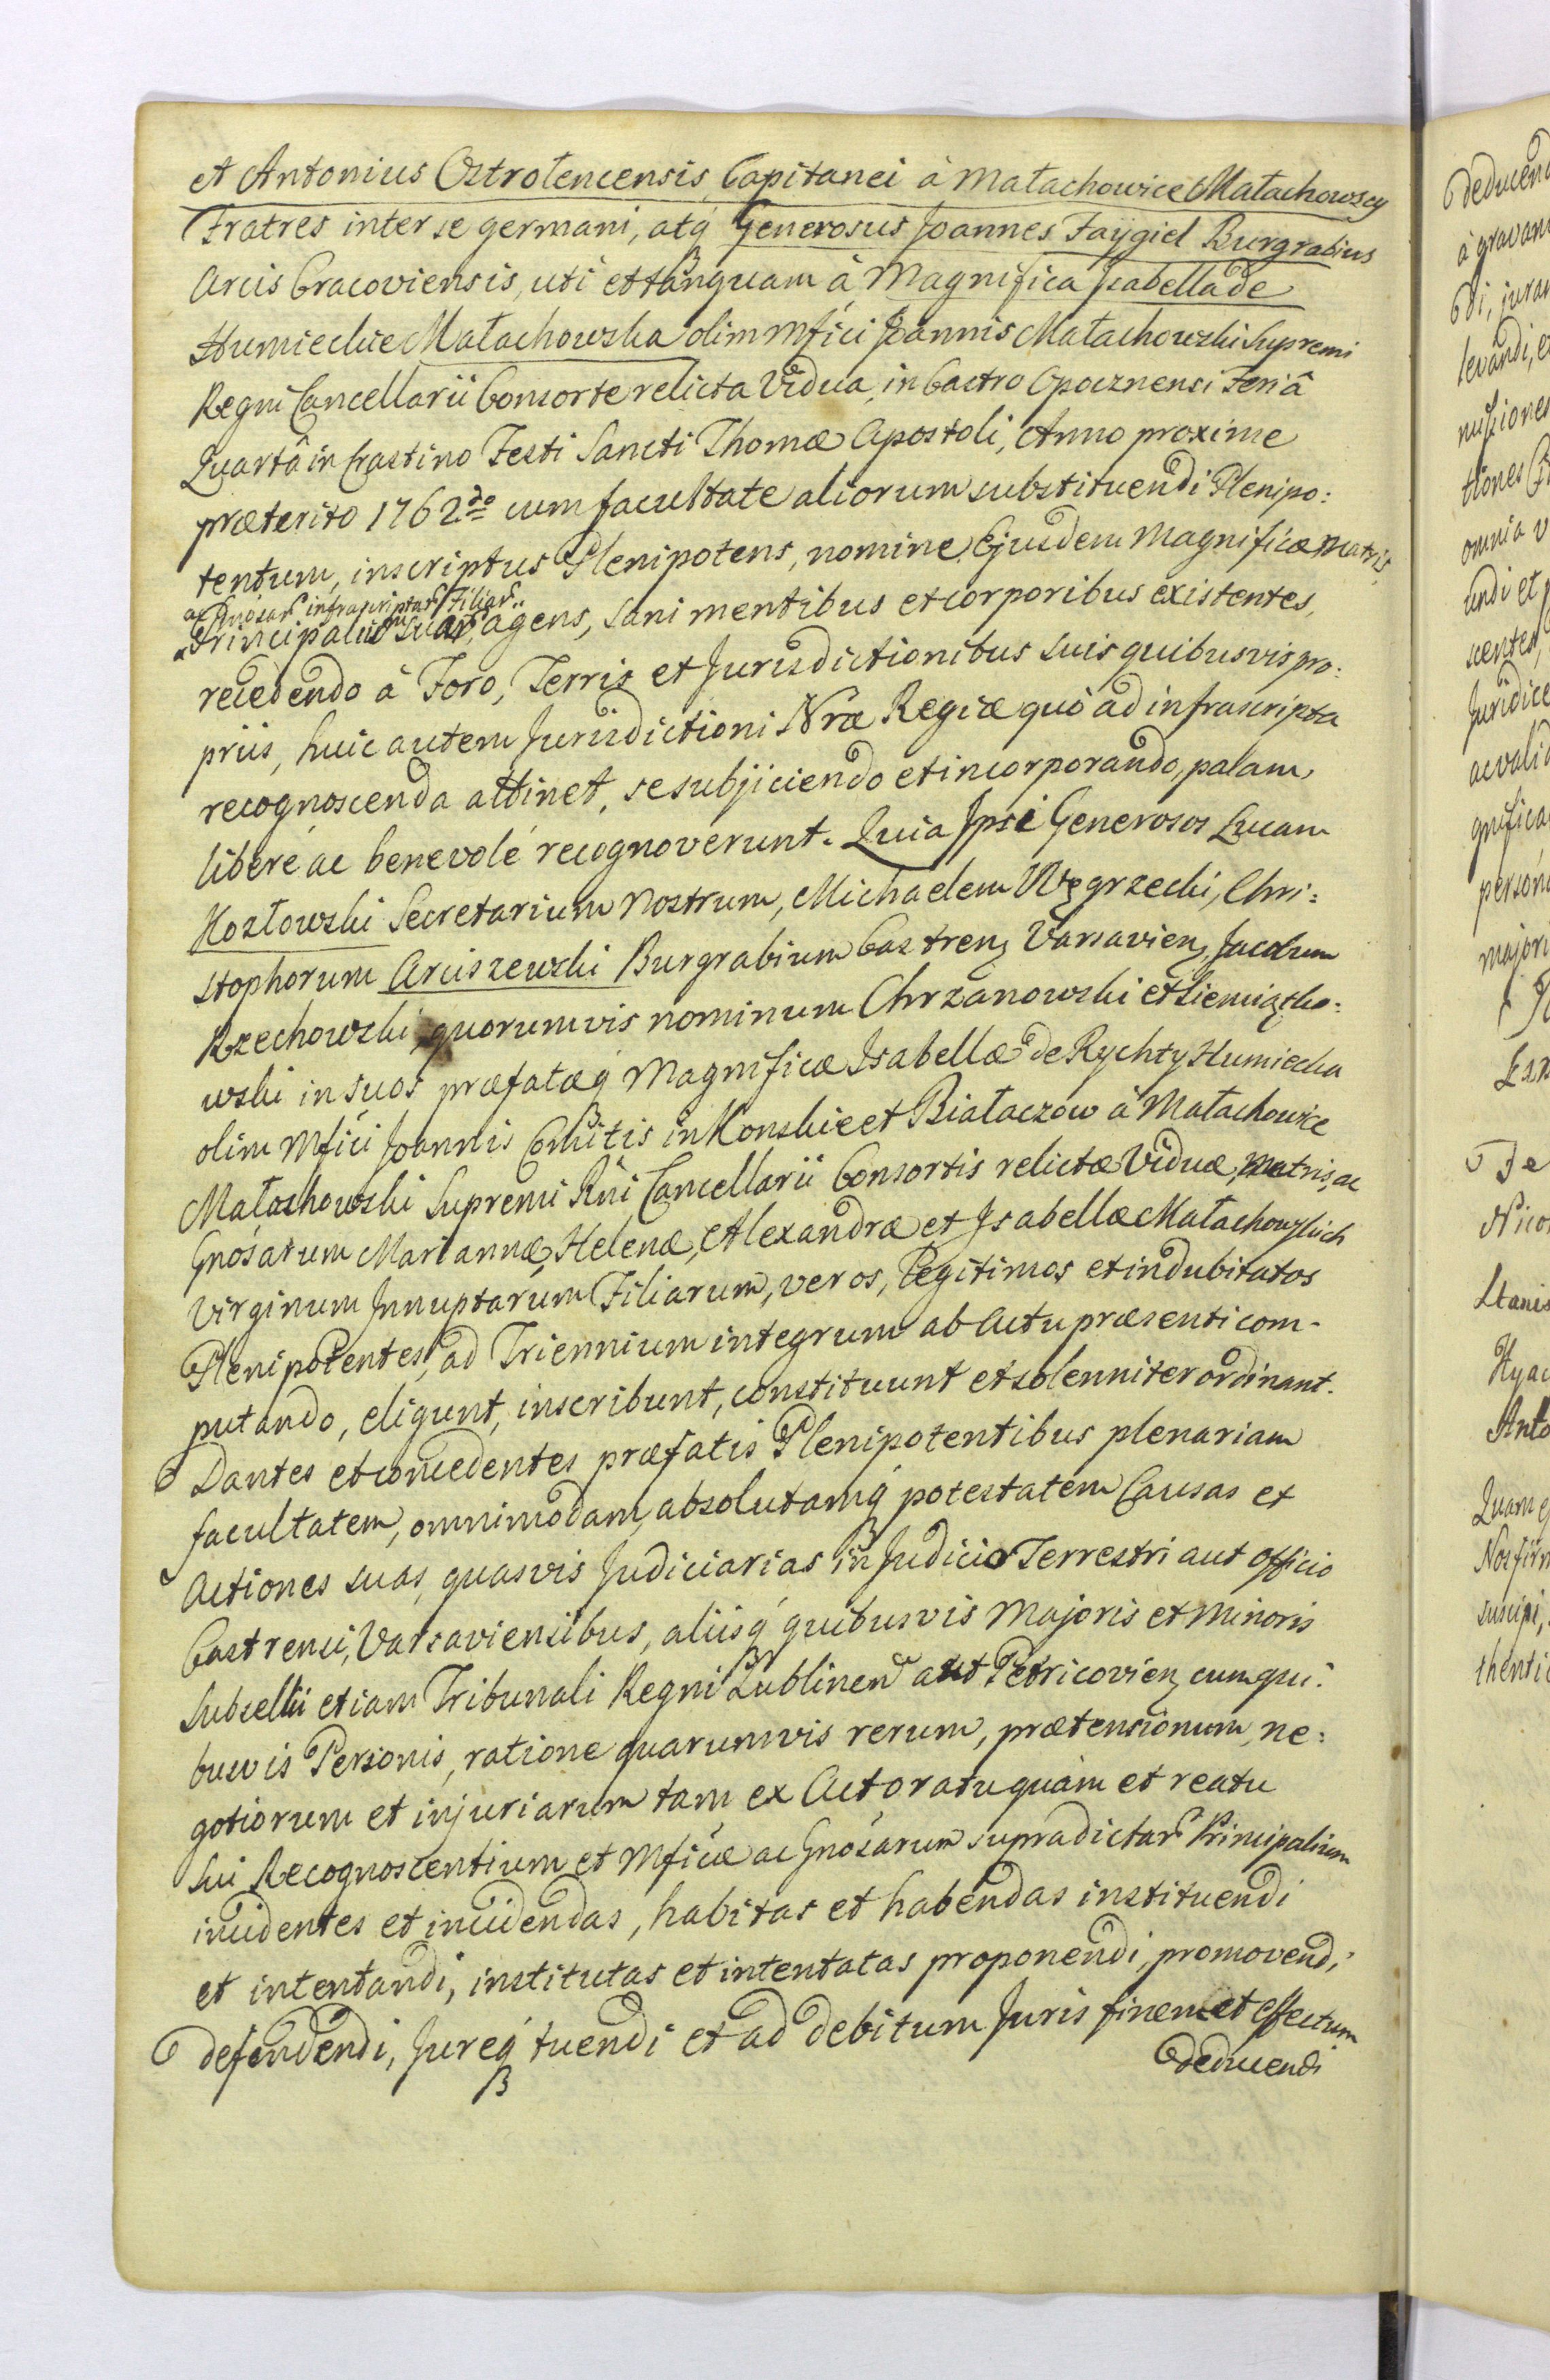 et Antonius Ostrołencensis, Capitanei à Małachowice Małachowscy
Fratres inter se germani, atq́ Generosus Joannes Faygiel Burgrabius
Arcis Cracoviensis, uti et tanquam à Magnifica Isabella de
Humieckie Małachowska olim Mfici Joannis Małachowski Supremi
Regni Cancellarii Consorte relicta Vidua, in Castro Opocznensi Feriâ
Quartâ in Crastino Festi Sancti Thomæ Apostoli, Anno proxime
præterito 1762do cum facultate aliorum substituendi Plenipo:
tentum, inscriptus Plenipotens, nomine Ejusdem Magnificæ Matris,
ac Gnosar infrascriptar Filiar.
Principaliũ suar, agens, sani mentibus et corporibus existentes,
recedendo à Foro, Terris et Jurisdictionibus suis quibusvis pro:
priis, huic autem Jurisdictioni Nræ Regiæ quò ad infrascripta
recognoscenda attinet, se subjiciendo et incorporando, palam,
libere ac benevolé recognoverunt. Quia Ipsi Generosos Lucam
Kozłowski Secretarium Nostrum, Michaelem Węgrzecki, Chri:
stophorum Arciszewski Burgrabium Castrenẓ Varsavienẓ, Jacobum
Rzechowski, quorumvis nominum Chrzanowski et Siemiątko:
wski in suos præfatæq́ Magnificæ Isabellæ de Rychty Humiecka
olim Mfici Joannis Comitis in Konskie et Białaczow à Małachowice
Małachowski Supremi Rñi Cancellarii Consortis relictæ Viduæ, Matris, ac
Gnosarum Mariannæ, Helenæ, Alexandræ et Isabellæ Małachowskich
Virginum Innuptarum Filiarum, veros, legitimos et indubitatos
Plenipotentes, ad Triennium integrum ab Actu præsenti com-
putando, eligunt, inscribunt, constituunt et solenniter ordinant.
Dantes et concedentes præfatis Plenipotentibus plenariam
facultatem, omnimodam, absolutamq́ potestatem Causas et
Actiones suas, quasvis Judiciarias in Judicio Terrestri aut Officio
Castrensi, Varsaviensibus, aliisq́ quibusvis Majoris et Minoris
Subsellii etiam Tribunali Regni Lublinen aut Petricovienẓ cum qui:
busvis Personis, ratione quarumvis rerum, prætensionum, ne:
gotiorum et injuriarum tam ex Actoratu quàm et reatu
Sui Recognoscentium et Mficæ ac Gnosarum supradictar Principalium
incidentes et incidendas, habitas et habendas instituendi
et intentandi, institutas et intentatas proponendi, promovendi,
defendendi, Jureq́ tuendi et ad debitum Juris finem et effectum
deducendi
deducend
à gravam
di, juram
levandi, e
missiones
tiones
omnia v
endi et
scentes,
Juridice
ac valid
gnifica
person
majori
Ex
De
Nico
Stanis
Hyac
Anto
Quam
Nos
suscipi,
thentic